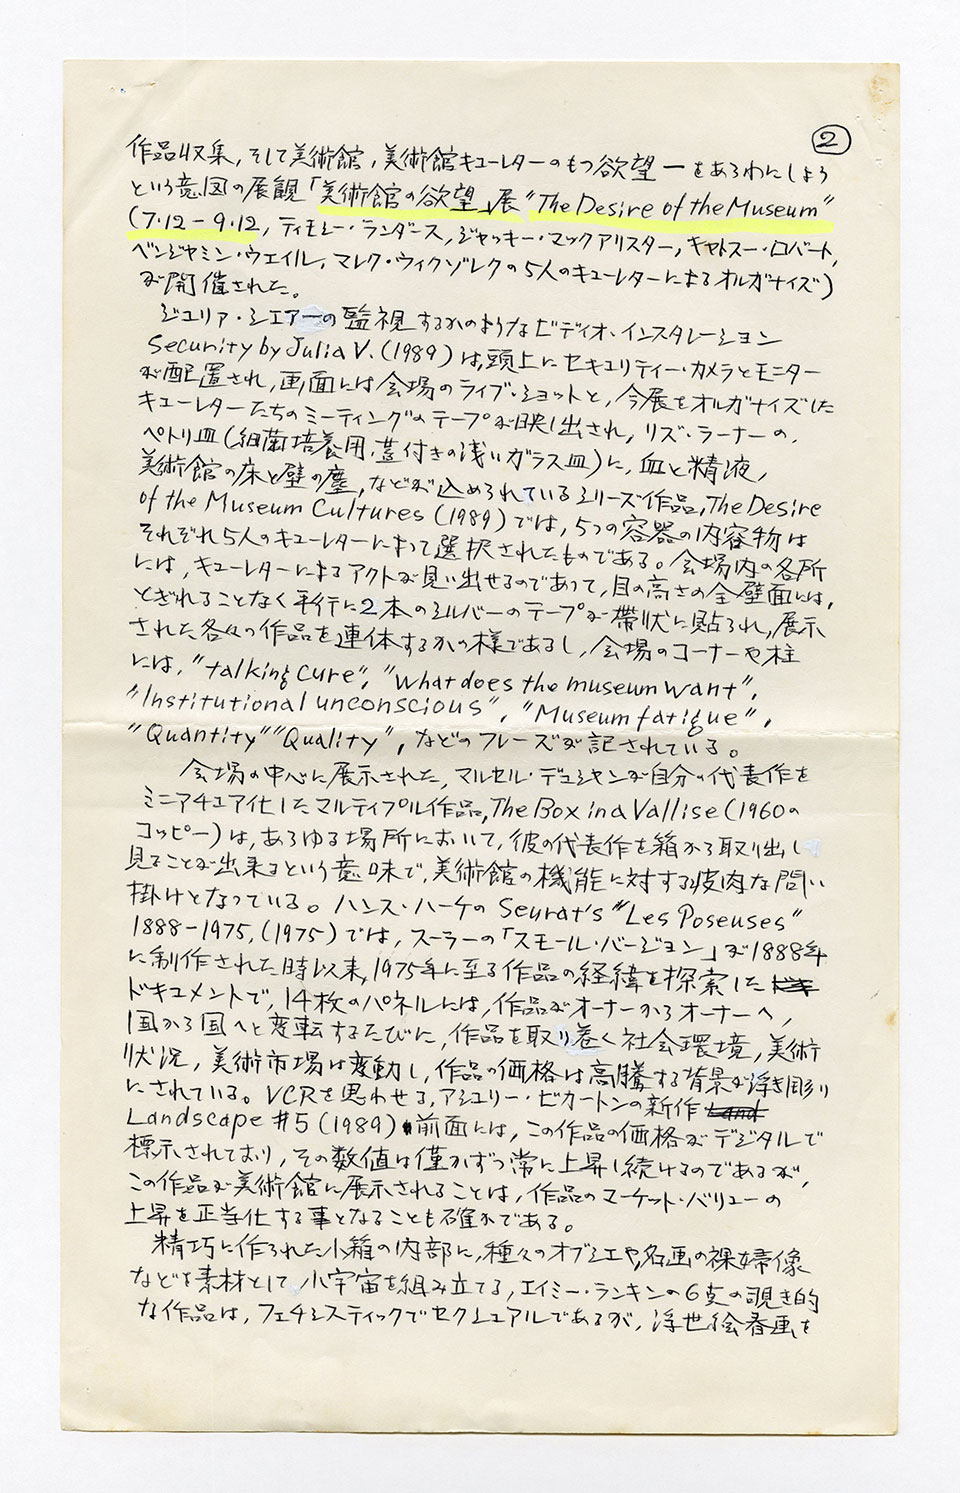 ②
作品収集,そして美術館,美術館キューレターのもつ欲望―をあらわにしよう
という意図の展観「美術館の欲望」展 "The Desire of the Museum"
(7.12-9.12, ティモシー・ランダース, ジャッキー・マックアリスター, キャトスー・ロバート,
ベンジャミン・ウエイル, マレク・ウィクゾレクの5人のキューレターによるオルガナイズ)
が開催された。
ジュリア・シエアーの監視するかのようなビディオ・インスタレーション
Security by Julia V. (1989)は,頭上にセキュリティー・カメラとモニター
が配置され,画面には会場のライブ・ショットと,今展をオルガナイズした
キューレターたちのミーティングのテープが映し出され,リズ・ラーナーの,
ペトリ皿(細菌培養用,蓋付きの浅いガラス皿)に,血と精液,
美術館の床と壁の塵,などが込められているシリーズ作品,The Desire
of the Museum Cultures (1989)では,5つの容器の内容物は
それぞれ5人のキューレターによって選択されたものである。会場内の各所
には,キューレターによるアクトが見い出せるのであって,目の高さの全壁面には,
とぎれることなく平行に2本のシルバーのテープが帯状に貼られ,展示
された各々の作品を連体するかの様であるし,会場のコーナーや柱
には,"talking cure", "What does the museum want",
"Institutional unconscious", "Museum fatigue",
"Quantity" "Quality",などのフレーズが記されている。
会場の中心に展示された,マルセル・デュシャンが自分の代表作を
ミニアチュア化したマルティプル作品,The Box in a Vallise (1960の
コッピー)は,あらゆる場所において,彼の代表作を箱から取り出し
見ることが出来るという意味で,美術館の機能に対する皮肉な問い
掛けとなっている。ハンス・ハーケの Seurat's "Les Poseuses"
1888-1975, (1975)では,スーラーの「スモール・バージョン」が1888年
に制作された時以来,1975年に至る作品の経緯を探索した
ドキュメントで,14枚のパネルには,作品がオーナーからオーナーへ,
国から国へと変転するたびに,作品を取り巻く社会環境,美術
状況,美術市場は変動し,作品の価格は高騰する背景が浮き彫り
にされている。VCRを思わせる,アシュリー・ビカートンの新作
Landscape #5 (1989)前面には,この作品の価格がデジタルで
標示されており,その数値は僅かずつ常に上昇し続けるのであるが,
この作品が美術館に展示されることは,作品のマーケット・バリューの
上昇を正当化する事となることも確かである。
精巧に作られた小箱の内部に,種々のオブジェや,名画の裸婦像
などを素材として,小宇宙を組み立てる,エイミー・ランキンの6点の覗き的
な作品は,フェチシスティックでセクシュアルであるが,浮世絵春画を